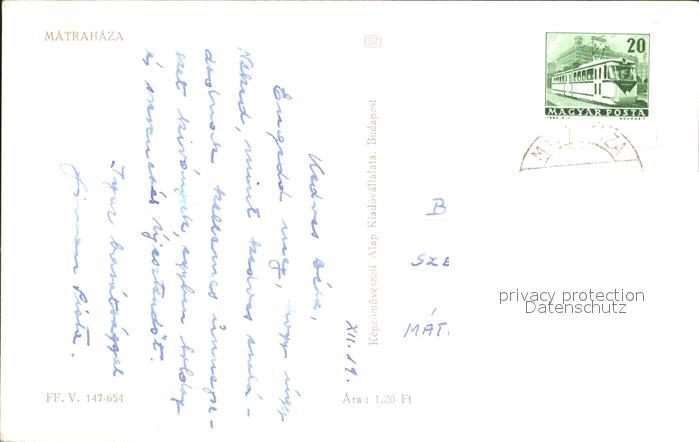 MÁTRAHÁZA
SZ
20
MAGYAR POSTA
MÁ ZA
Kedves Béla,
Engedd meg, hogy úgy
Neked, mint kedves csalá-
dodnak kellemes ünnepe-
ket kívánjak, egyben boldog
és szerencsés újesztendőt.
Igaz barátsággal
Pista.
XII. 19.
Képzőművészeti Alap Kiadóvállalata, Budapest
B
SZE
MÁT.
privacy protection
Datenschutz
FF. V. 147-654
Ára: 1,20 Ft